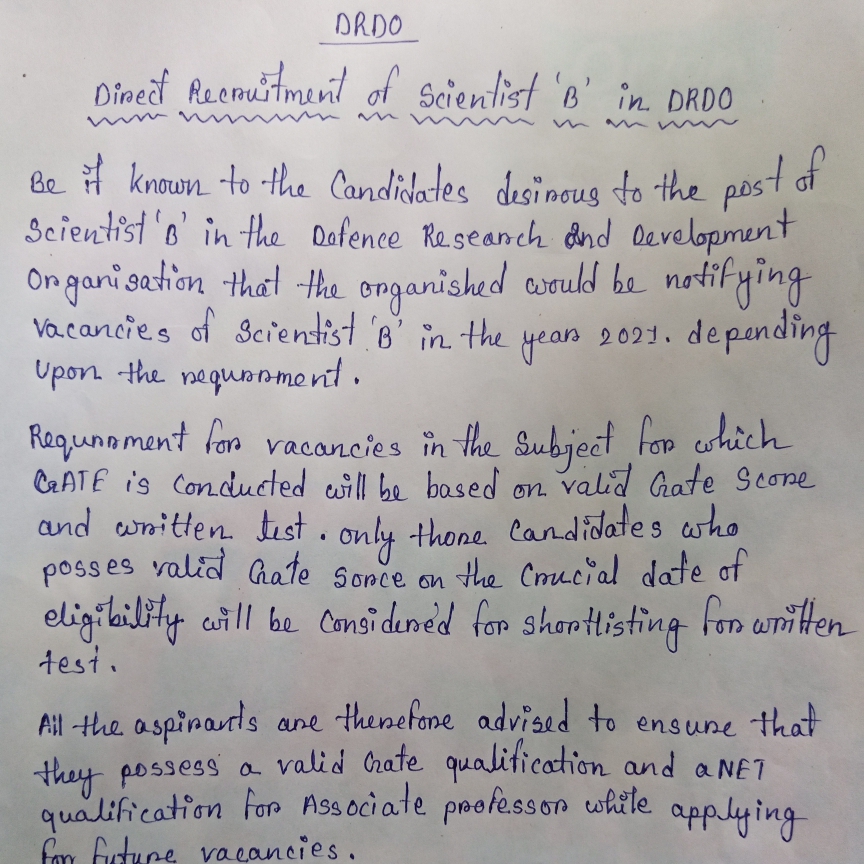 DRDO
Direct Recruitment of Scientist 'B' in DRDO
Be it known to the Candidates desirous to the post of
Scientist 'B' in the Defence Research and Development
Organisation that the organished would be notifying
vacancies of Scientist 'B' in the year 2021. depending
upon the requrrment.
Requrrment for vacancies in the Subject for which
GATE is conducted will be based on valid Gate Score
and written test. only those Candidates who
posses valid Gate sorce on the Crucial date of
eligibility will be Considered for shortlisting for written
test.
All the aspirants are therefore advised to ensure that
they possess a valid Gate qualification and a NET
qualification for Associate professor while applying
for future vacancies.